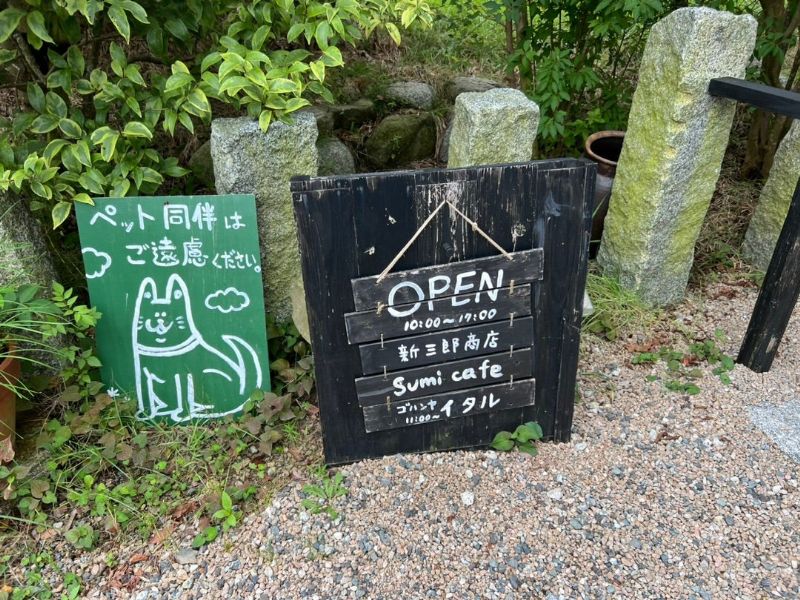 ペット同伴は
ご遠慮ください。
OPEN
10:00〜17:00
新三郎商店
Sumi cafe
ゴハンヤ イタル
11:00〜